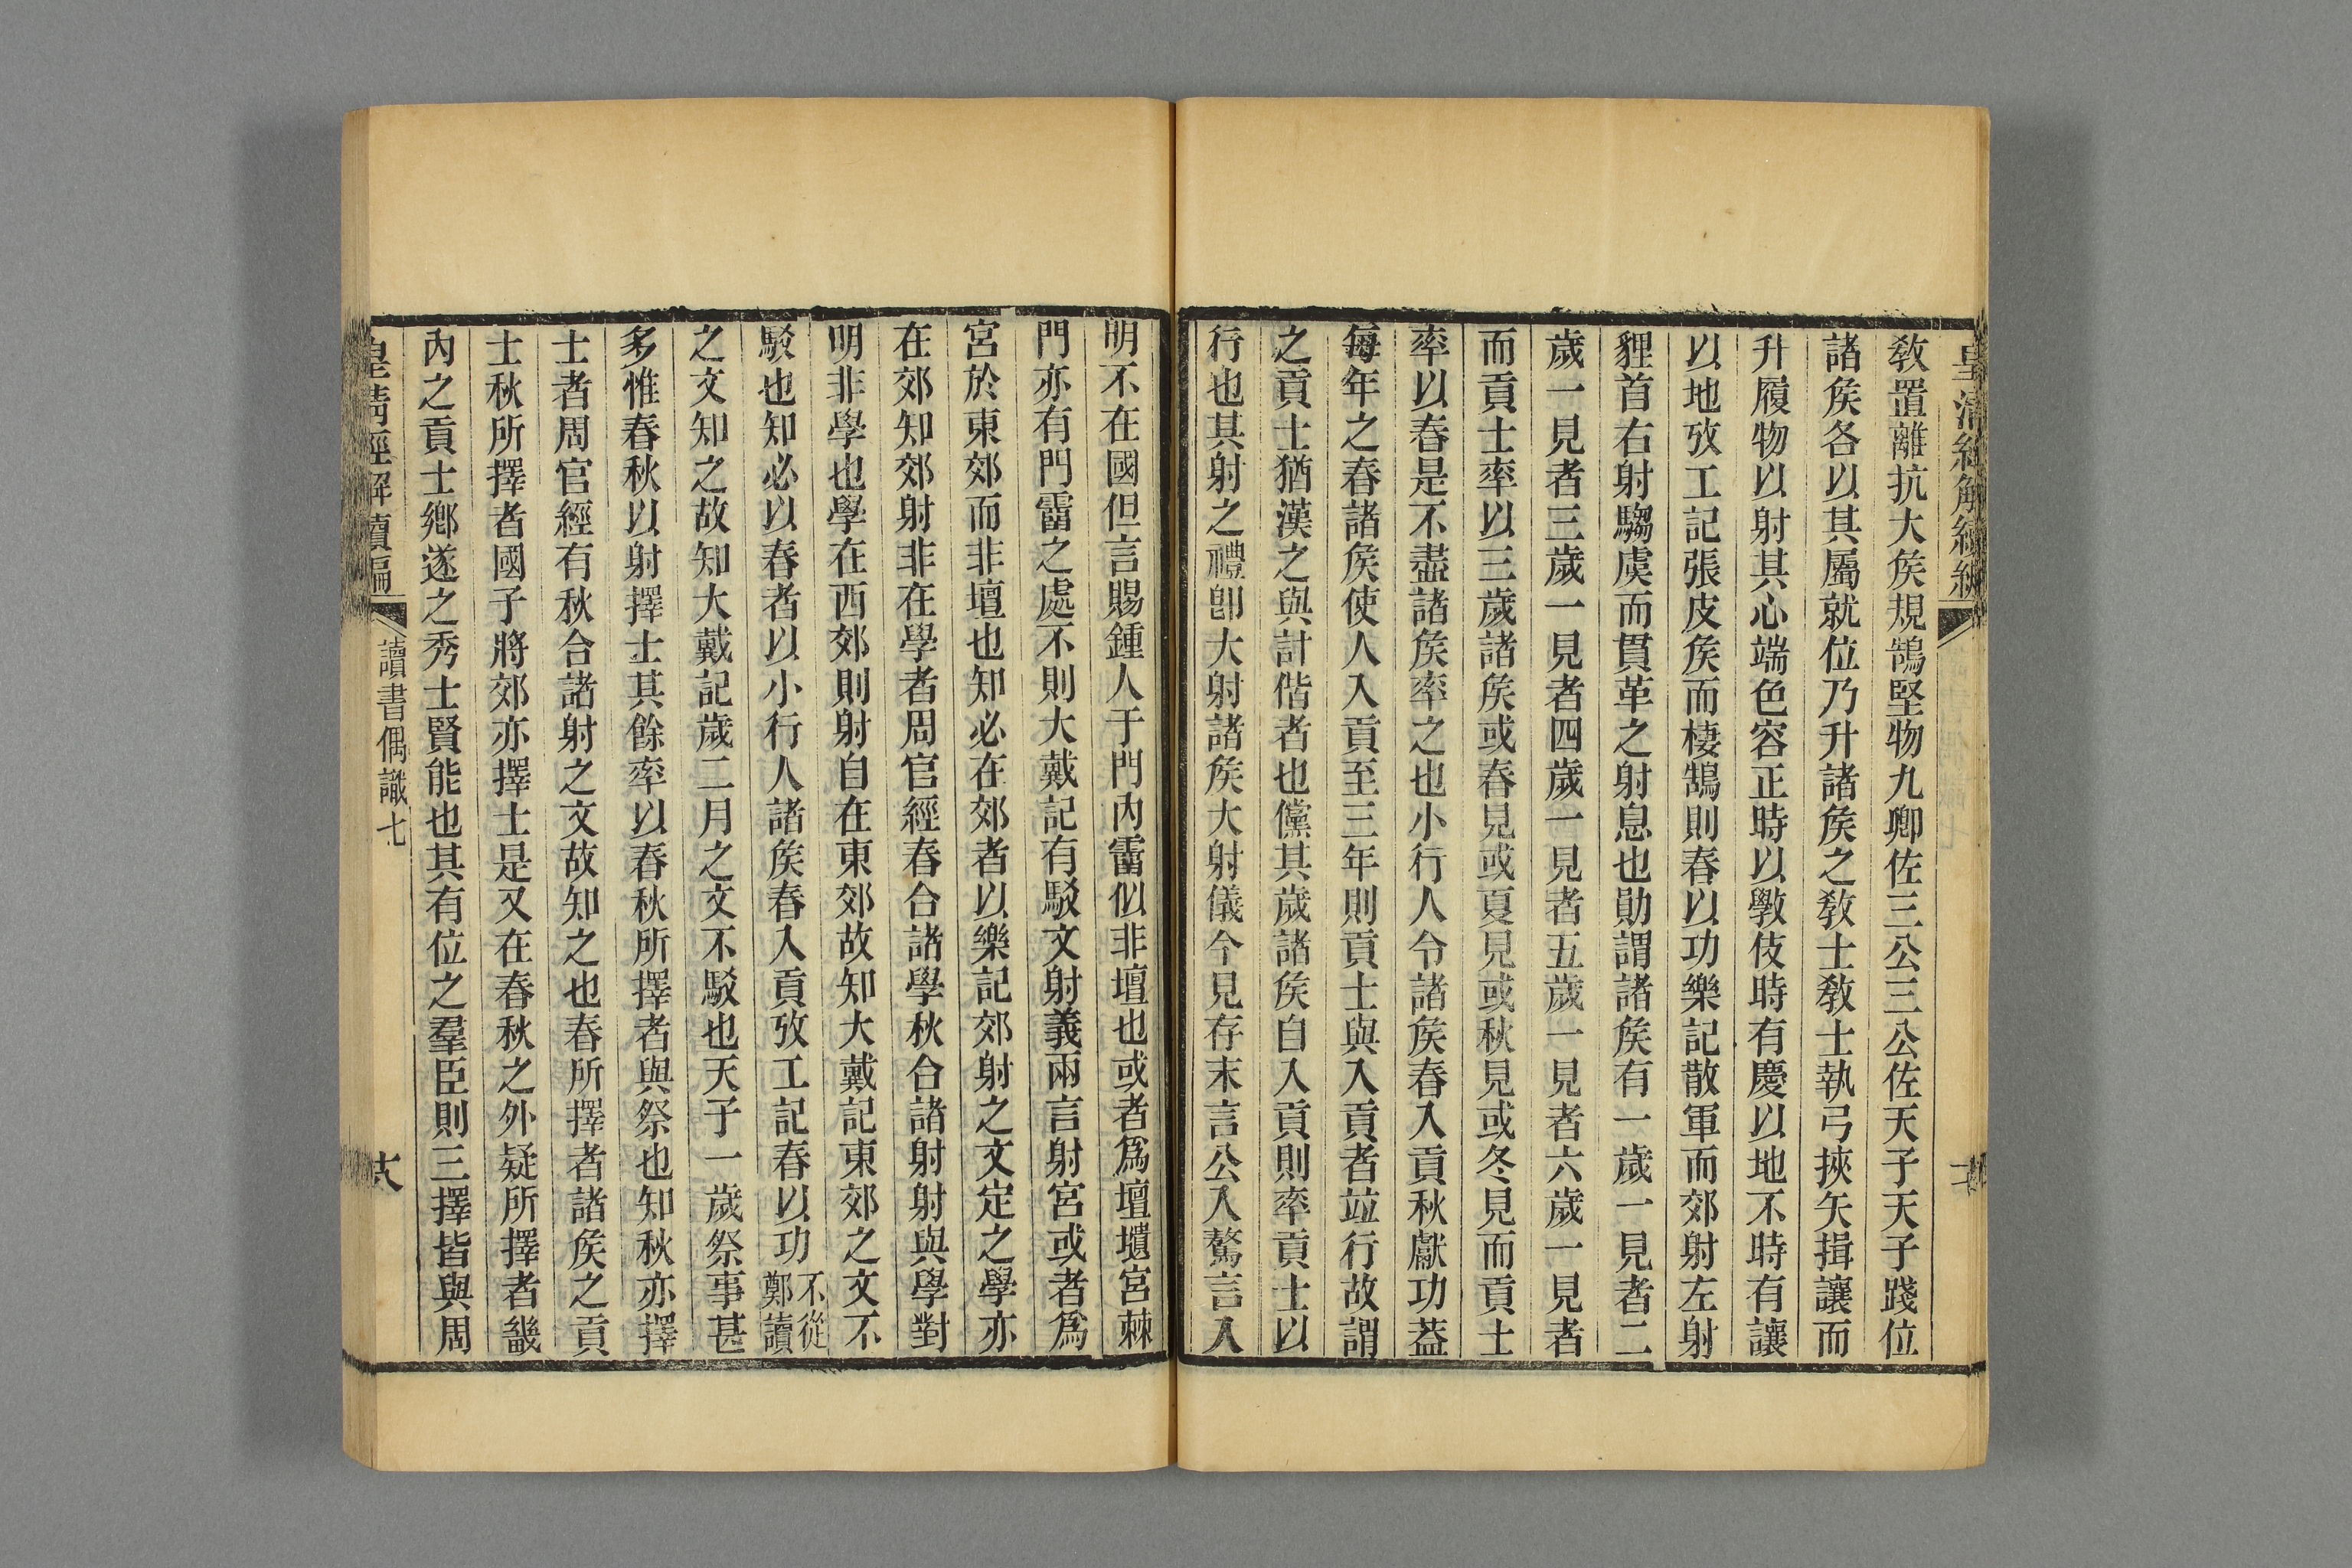 皇清經解續編
教罝離抗大矦規鵠堅物九卿佐三公三公佐天子天子踐位
諸矦各以其屬就位乃升諸矦之教士教士執弓挾矢揖讓而
升履物以射其心端色容正時以斆伎時有慶以地不時有讓
以地攷工記張皮矦而棲鵠則春以功樂記散軍而郊射左射
貍首右射騶虞而貫革之射息也勛謂諸矦有一歲一見者二
歲一見者三歲一見者四歲一見者五歲一見者六歲一見者
而貢士率以三歲諸矦或春見或夏見或秋見或冬見而貢士
率以春是不盡諸矦率之也小行人令諸矦春入貢秋獻功葢
每年之春諸矦使人入貢至三年則貢士與入貢者竝行故謂
之貢士猶漢之與計偕者也儻其歲諸矦自入貢則率貢士以
行也其射之禮卽大射諸矦大射儀今見存末言公入驁言入
明不在國但言賜鍾人于門內霤似非壇也或者爲壇壝宮棘
門亦有門霤之處不則大戴記有駁文射義兩言射宮或者爲
宮於東郊而非壇也知必在郊者以樂記郊射之文定之學亦
在郊知郊射非在學者周官經春合諸學秋合諸射射與學對
明非學也學在西郊則射自在東郊故知大戴記東郊之文不
駁也知必以春者以小行人諸矦春入貢攷工記春以功不從鄭讀
之文知之故知大戴記歲二月之文不駁也天子一歲祭事甚
多惟春秋以射擇士其餘率以春秋所擇者與祭也知秋亦擇
士者周官經有秋合諸射之文故知之也春所擇者諸矦之貢
士秋所擇者國子將郊亦擇士是又在春秋之外疑所擇者畿
內之貢士鄉遂之秀士賢能也其有位之羣臣則三擇皆與周
皇淸經解續編 讀書偶識七 六